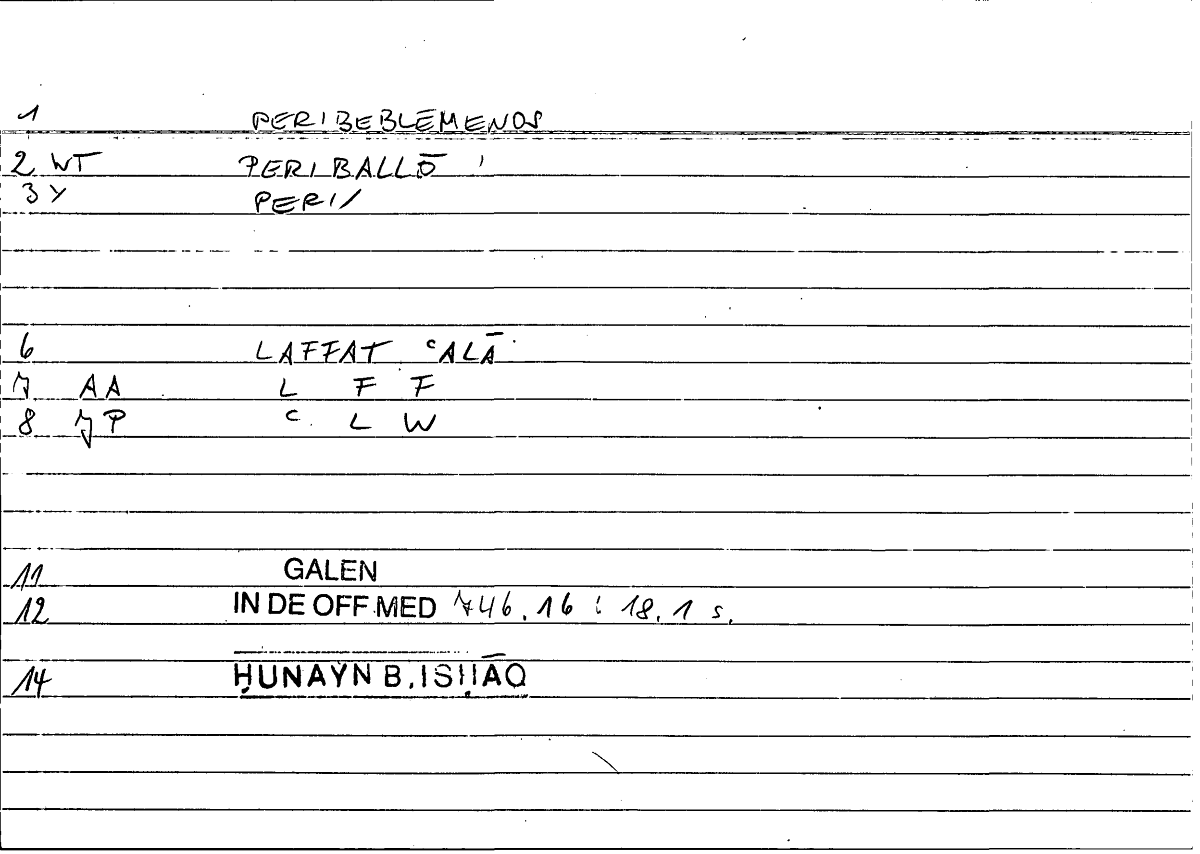 1 PERIBEBLEMENOS
2 WT PERIBALLŌ
3 Y PERI/
6 LAFFAT ʿALĀ
7 AA L F F
8 7P ʿ L W
11 GALEN
12 IN DE OFF MED 746.16 : 18.1 s.
14 ḤUNAYN B. ISḤĀQ